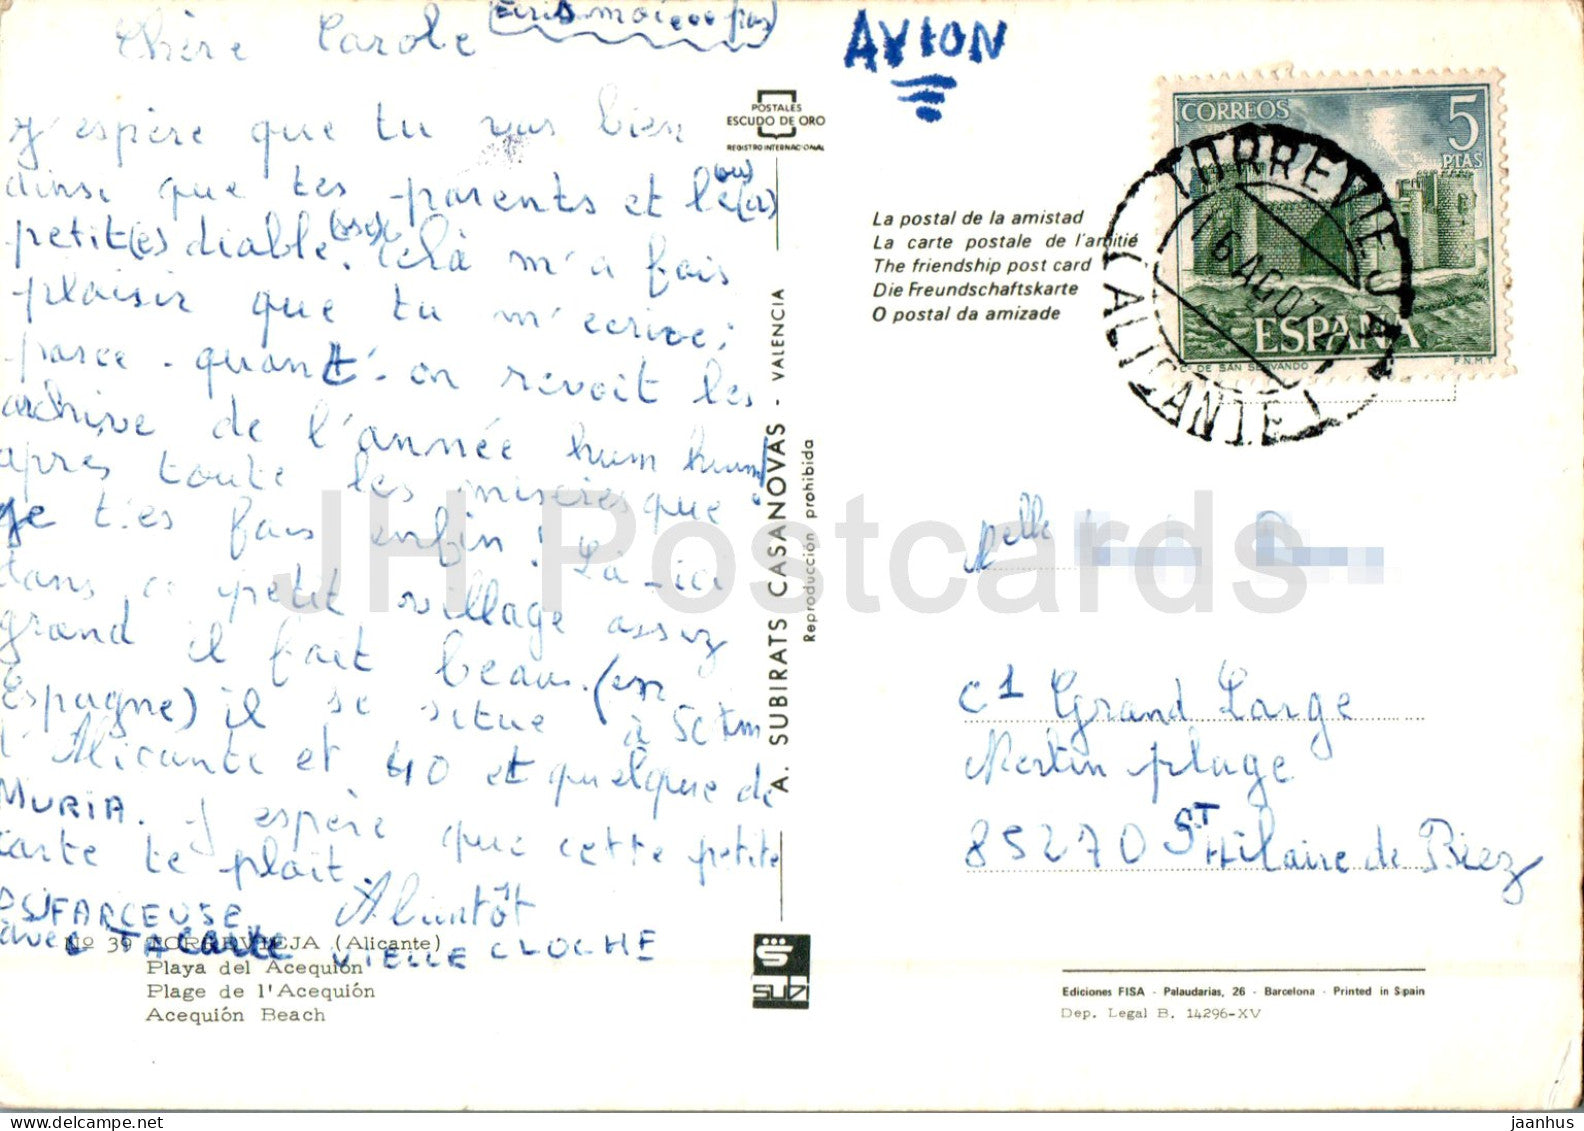 Chère Carole
(Ecris moi
J'espère que tu vas bien
ainsi que tes parents et le(s)
(ou)
petit(es) diable
(sse)s. Celà m'a fais
plaisir que tu m'écrive;
parce-quant-on revoit les
archive de l'année hum hum!
après toute les misères que
je t'es fais enfin! Là-ici
dans ce petit village assez
grand il fait beau. (en
Espagne) il se situe à 50 km
d'Alicante et 40 et quelque de
MURIA. J'espère que cette petite
carte te plait.
PS FARCEUSE A bientôt
avec TA CARTE VIELLE CLOCHE
Nº 39 TORREVIEJA (Alicante)
Playa del Acequión
Plage de l'Acequión
Acequión Beach
POSTALES
ESCUDO DE ORO
REGISTRO INTERNACIONAL
A. SUBIRATS CASANOVAS - VALENCIA
Reproducción prohibida
SUBI
AVION
La postal de la amistad
La carte postale de l'amitié
The friendship post card
Die Freundschaftskarte
O postal da amizade
CORREOS 5
PTAS
ESPAÑA
Cº DE SAN SERVANDO F.N.M.T.
TORREVIEJA
16 AGO
(ALICANTE)
Melle
C1 Grand Large
Merlin plage
85270 ST Hilaire de Riez
Ediciones FISA - Palaudarias, 26 - Barcelona - Printed in Spain
Dep. Legal B. 14296-XV
JH Postcards
www.delcampe.net
jaanhus